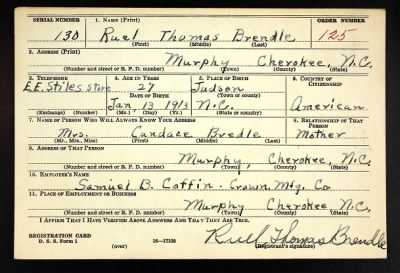 SERIAL NUMBER 1. NAME (Print) ORDER NUMBER
130 Ruel Thomas Brendle 125
(First) (Middle) (Last)
2. ADDRESS (Print)
Murphy Cherokee, N.C.
(Number and street or R. F. D. number) (Town) (County) (State)
3. TELEPHONE 4. AGE IN YEARS 5. PLACE OF BIRTH 6. COUNTRY OF CITIZENSHIP
E.E. Stiles store 27 Judson
DATE OF BIRTH (Town or county)
Jan. 13 1913 N.C. American
(Exchange) (Number) (Mo.) (Day) (Yr.) (State or country)
7. NAME OF PERSON WHO WILL ALWAYS KNOW YOUR ADDRESS 8. RELATIONSHIP OF THAT PERSON
Mrs. Candace Bredle Mother
(Mr., Mrs., Miss) (First) (Middle) (Last)
9. ADDRESS OF THAT PERSON
Murphy, Cherokee, N.C.
(Number and street or R. F. D. number) (Town) (County) (State)
10. EMPLOYER'S NAME
Samuel B. Coffin - Crown, Mfg. Co
11. PLACE OF EMPLOYMENT OR BUSINESS
Murphy Cherokee N.C.
(Number and street or R. F. D. number) (Town) (County) (State)
I AFFIRM THAT I HAVE VERIFIED ABOVE ANSWERS AND THAT THEY ARE TRUE.
REGISTRATION CARD
D. S. S. Form 1 (over) 16—17105 Ruel Thomas Brendle
(Registrant's signature)